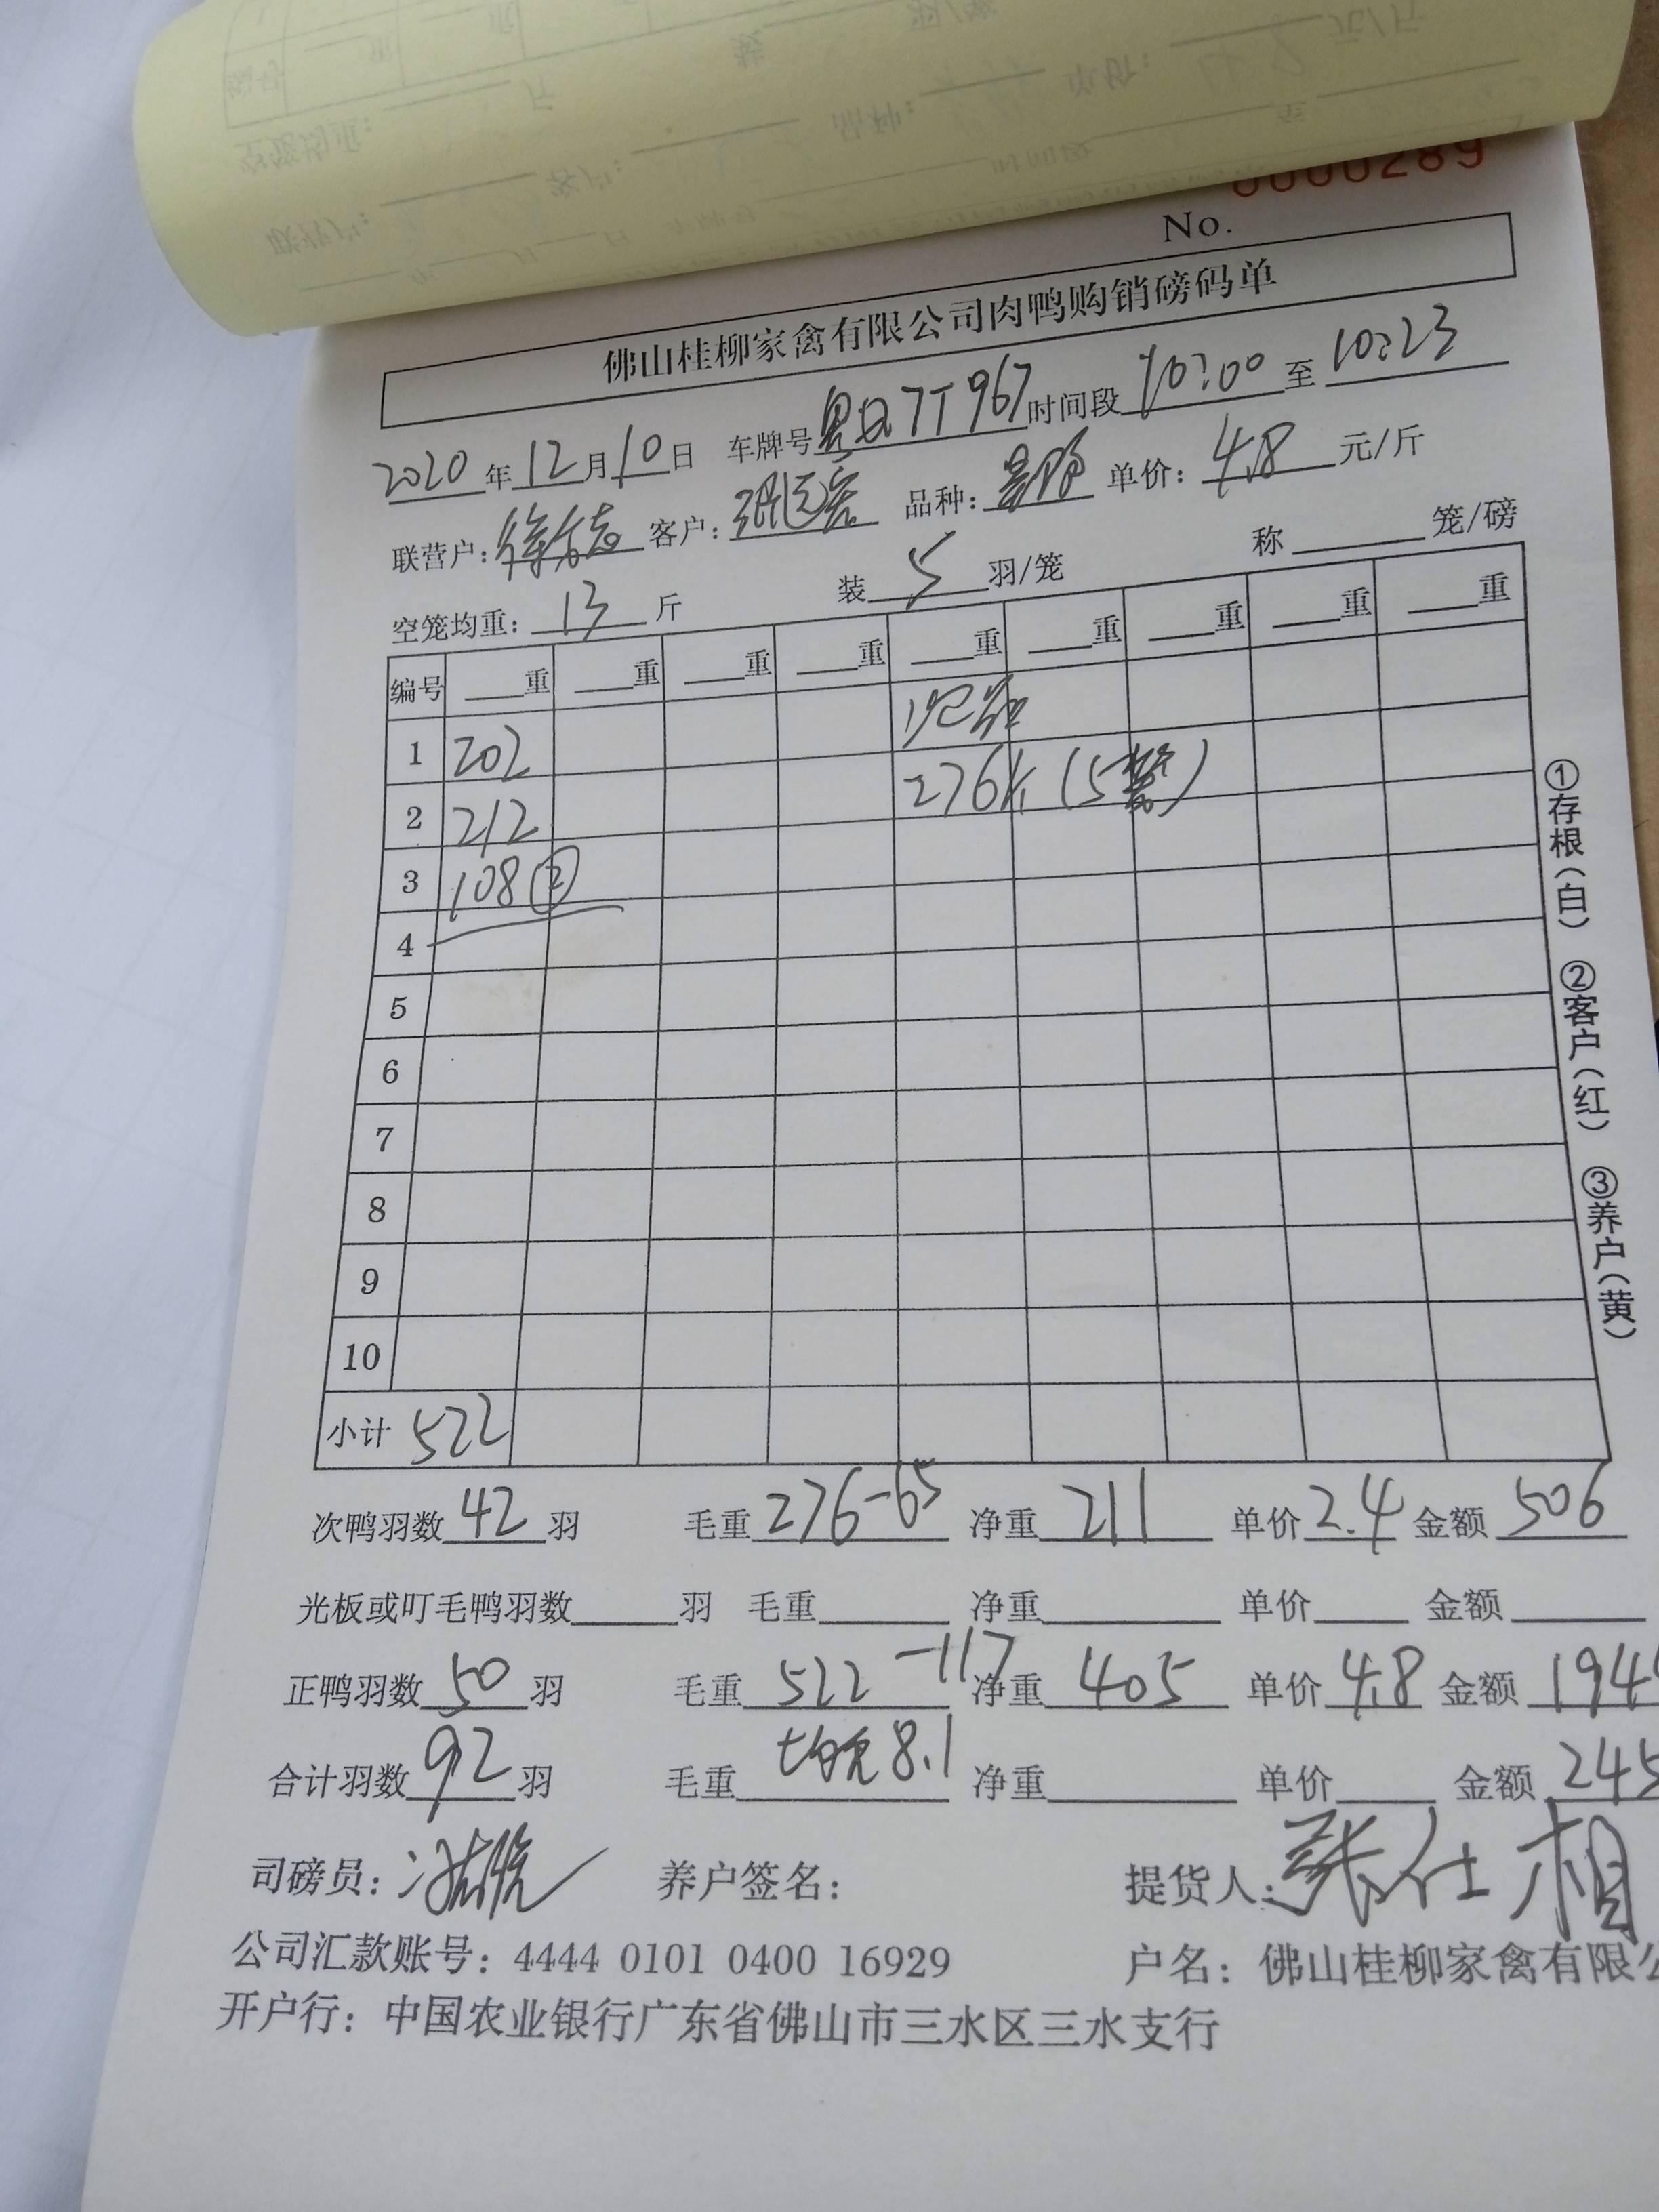 0000289
No.
佛山桂柳家禽有限公司肉鸭购销磅码单
2020年12月10日 车牌号粤 7T967时间段10:00至10:23
联营户: 客户: 品种: 单价:4.8元/斤
空笼均重:13斤 装5羽/笼 称 笼/磅
编号 重 重 重 重 重 重 重 重 重
1 202
2 212 276斤(5 )
3 108②
4
5
6
7
8
9
10
小计 522
①存根(白) ②客户(红) ③养户(黄)
次鸭羽数42羽 毛重276-65 净重211 单价2.4 金额506
光板或叮毛鸭羽数 羽 毛重 净重 单价 金额
正鸭羽数50羽 毛重522-117 净重405 单价4.8 金额194
合计羽数92羽 毛重均重8.1 净重 单价 金额245
司磅员: 养户签名: 提货人:张仕相
公司汇款账号:4444 0101 0400 16929 户名:佛山桂柳家禽有限公
开户行:中国农业银行广东省佛山市三水区三水支行